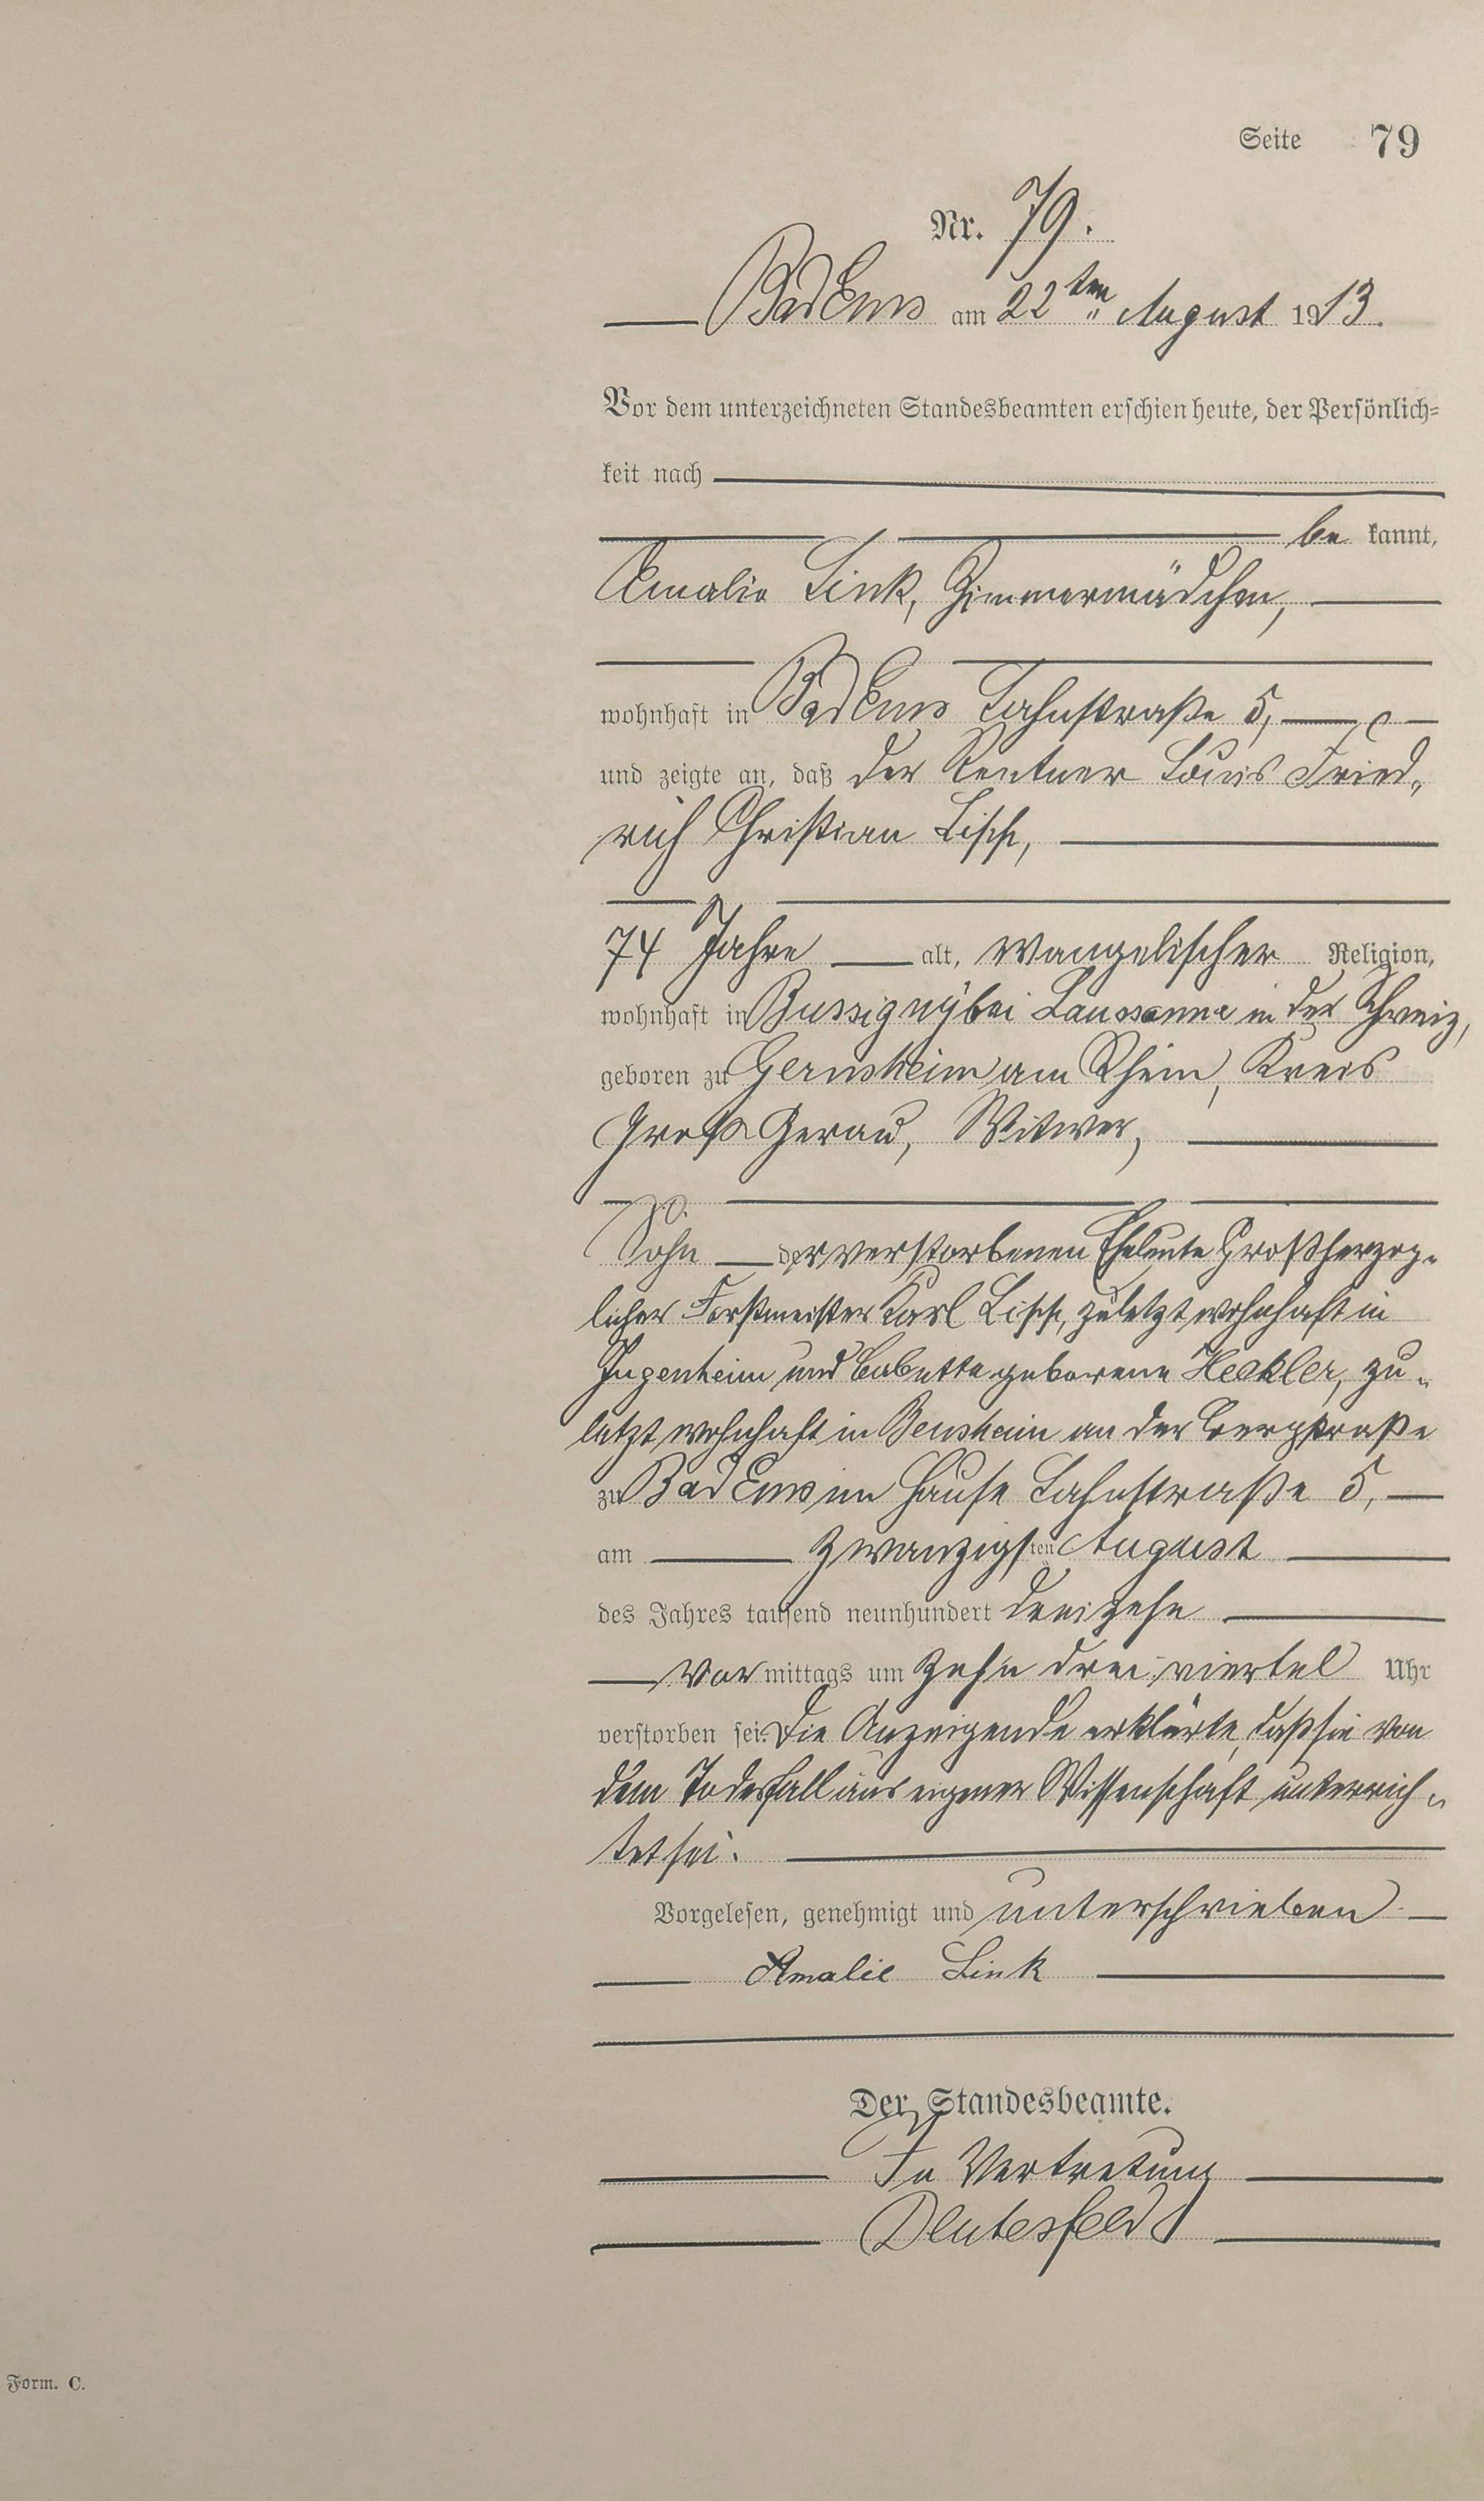 Seite 79
Nr. 79.
Bad Ems am 22ten August 1913.
Vor dem unterzeichneten Standesbeamten erschien heute, der Persönlich=
keit nach
be kannt,
Amalie Link, Zimmermädchen,
wohnhaft in Bad Ems Lahnstraße 5,
und zeigte an, daß der Rentner Louis Fried„
rich Christian
74 Jahre alt, evangelischer Religion,
wohnhaft in Bussigny bei Laussanne in der Schweiz,
geboren zu Gernsheim am Rhein, Kreis
Groß Gerau, Witwer,
Sohn der verstorbenen Eheleute Großherzog„
licher Forstmeister Karl zuletzt wohnhaft in
Jugenheim und Babette geborene Heckler, zu„
letzt wohnhaft in Bensheim an der Bergstraße
zu Bad Ems im Hause Lahnstraße 5,
am zwanzigsten August
des Jahres tausend neunhundert dreizehn
vor mittags um zehn drei viertel Uhr
verstorben sei. Die Anzeigende erklärte, daß sie von
dem Todesfall aus eigener Wissenschaft unterrich„
tet sei.
Vorgelesen, genehmigt und unterschrieben
Amalie Link
Der Standesbeamte.
In Vertretung
Form. C.